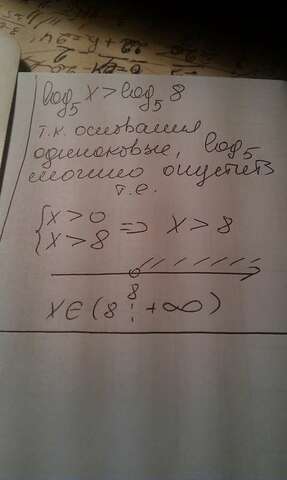 log₅ x > log₅ 8
т.к. основания
одинаковые, log₅
можно опустить
т.е.
{x > 0
{x > 8 => x > 8
8
x ∈ (8 ; +∞)